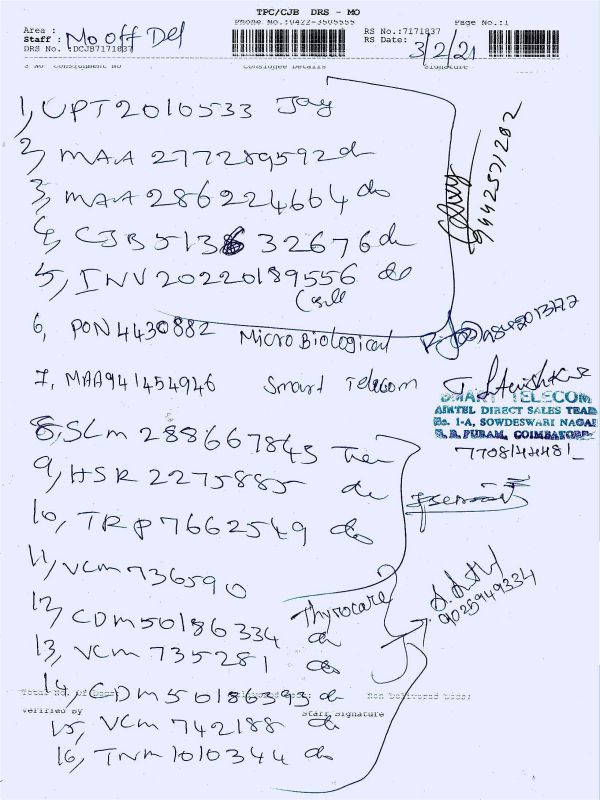 TPC/CJB DRS - MO
Phone No.:0422-3505555
Page No.:1
Area :
Staff : Mo off Del
DRS No.:DCJB7171837
RS No.:7171837
RS Date: 3/2/21
S No Consignment No Consignee Details Signature
1, UPT2010533 Jay
2, MAA 277289592 do
3, MAA 286224664 do
4, CJB513632676 do
5, INV20220189556 do
9442571202
6, PON4430882 Micro Biological
7, MAA941454946 Smart Telecom
SMART TELECOM
AIRTEL DIRECT SALES TEAM
No. 1-A, SOWDESWARI NAGAR
COIMBATORE
8, SLM 288667845
9, HSR 2275885 do
10, TRP7662549 do
11, VCM736590
Thyrocare
9025949334
12, CDM50186334 do
13, VCM 735281 do
14, CDM50186393 do
Non Delivered Docs:
Verified by Staff Signature
15, VCM 742188 do
16, TNM1010344 do